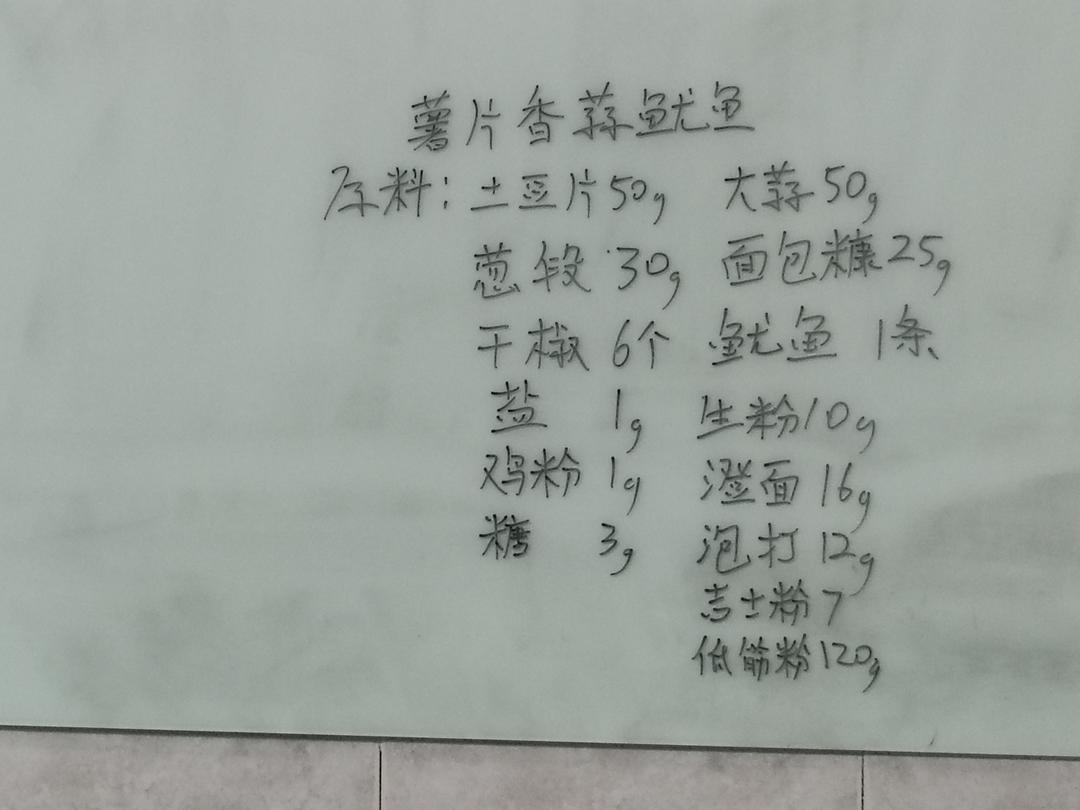 薯片香蒜鱿鱼
原料：土豆片50g 大蒜50g
葱段 30g 面包糠25g
干椒 6个 鱿鱼 1条
盐 1g 生粉10g
鸡粉 1g 澄面 16g
糖 3g 泡打 12g
吉士粉 7
低筋粉120g